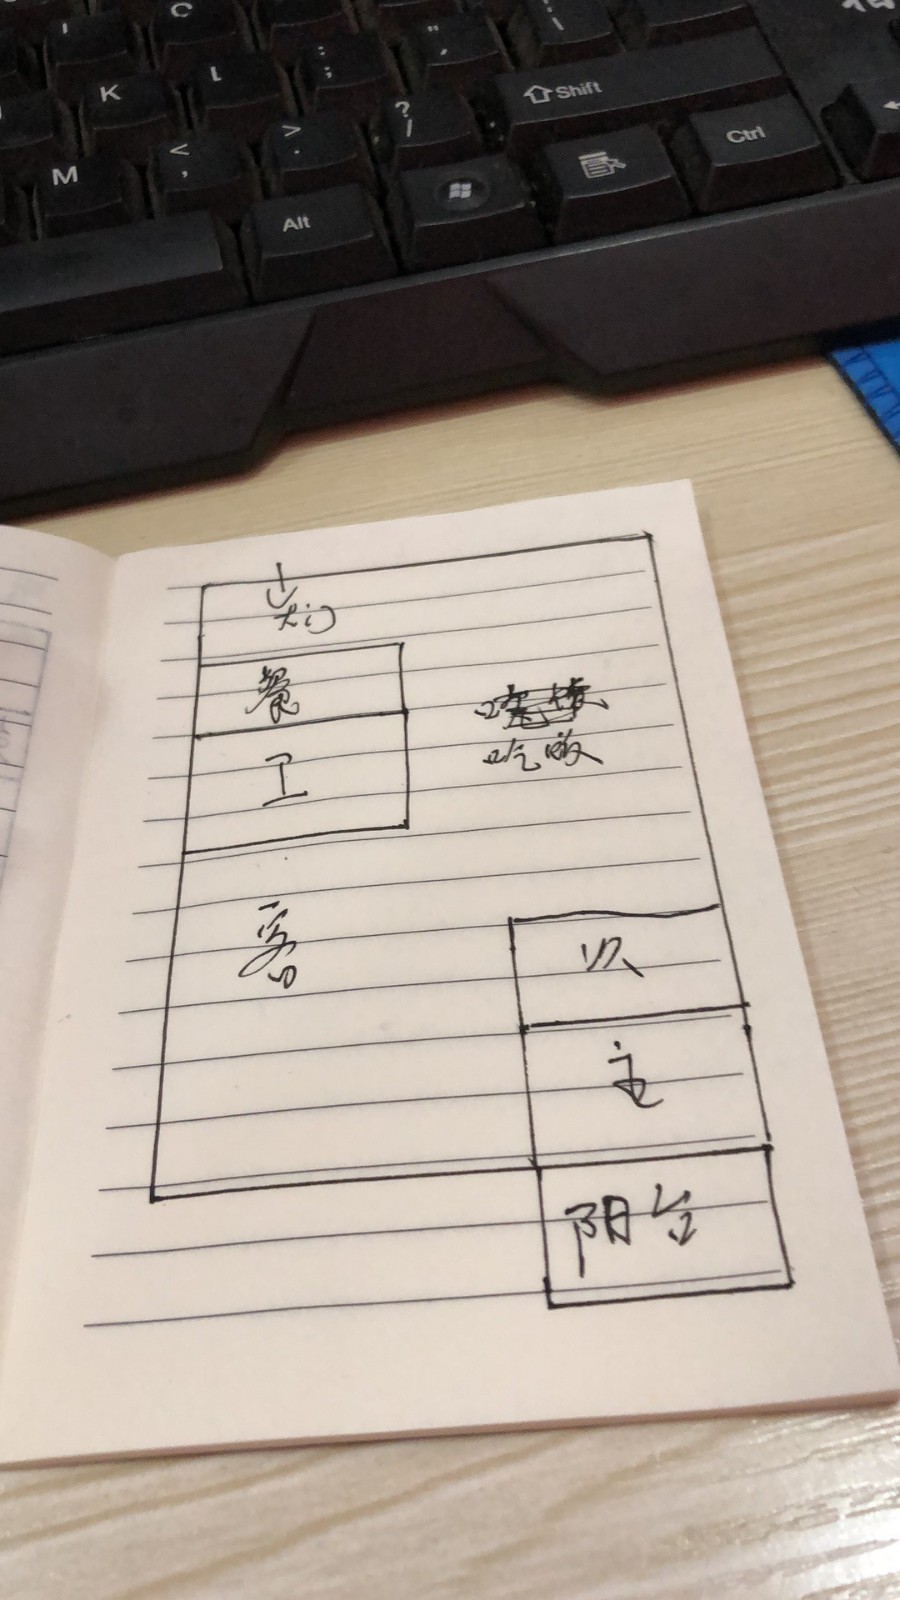 C
K
L
:
;
"
,
|
\
Shift
M
<
,
>
.
?
/
Ctrl
Alt
大门
餐
工
吃饭
客
次
主
阳台